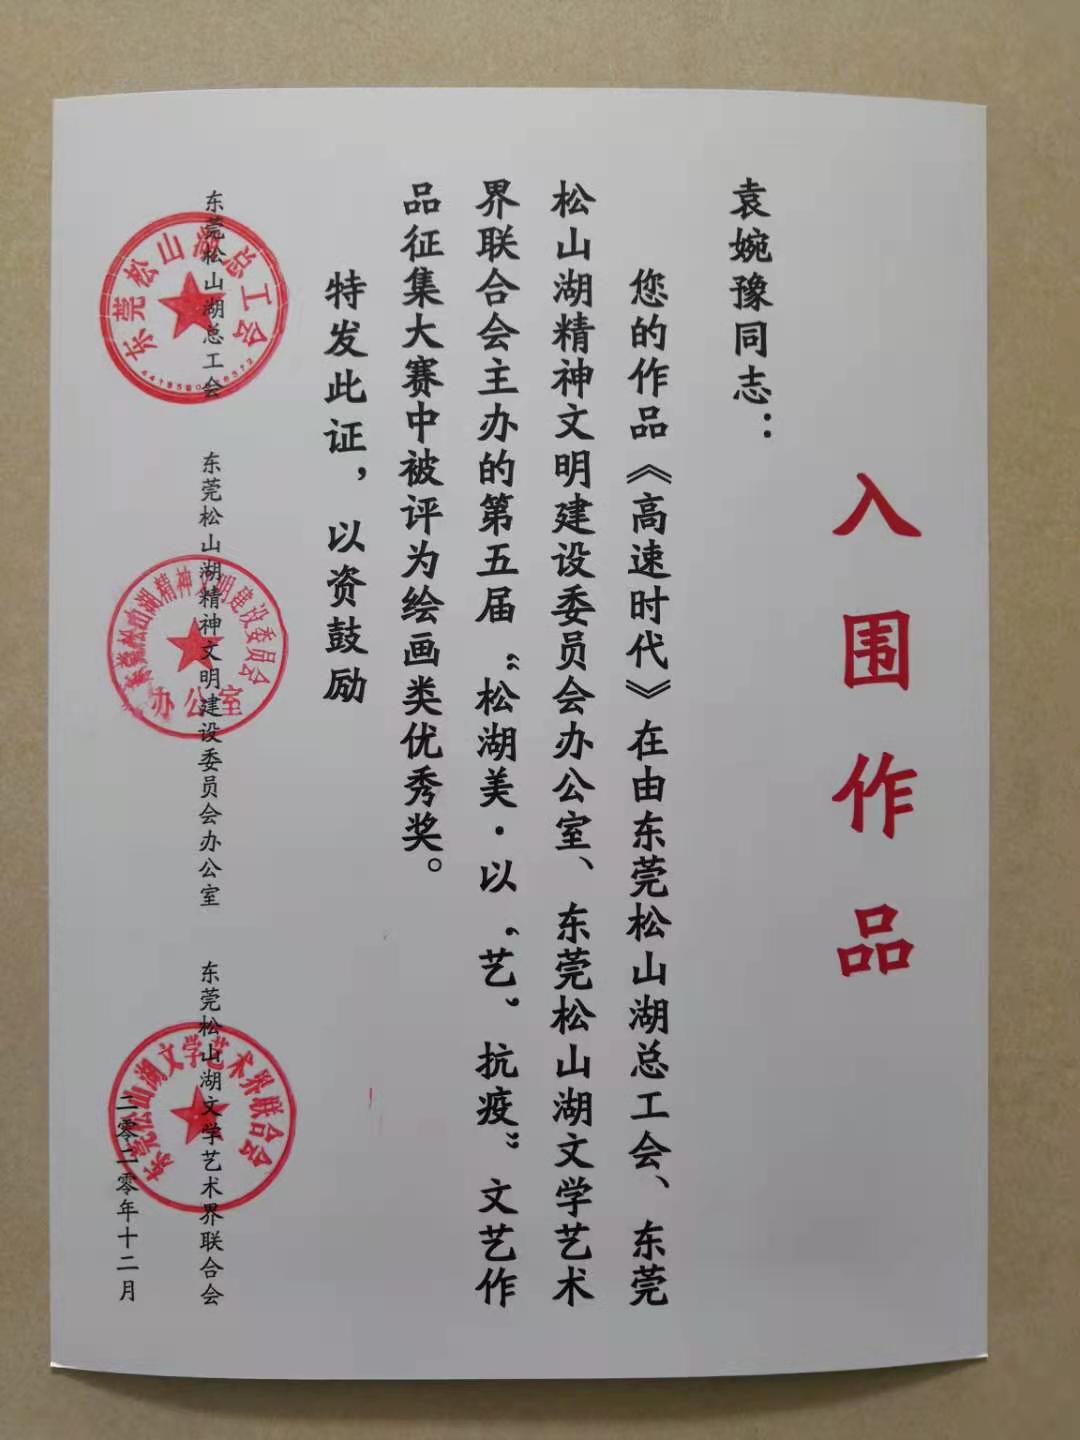 入围作品
袁婉豫同志：
您的作品《高速时代》在由东莞松山湖总工会、东莞
松山湖精神文明建设委员会办公室、东莞松山湖文学艺术
界联合会主办的第五届“松湖美·以‘艺’抗疫”文艺作
品征集大赛中被评为绘画类优秀奖。
特发此证，以资鼓励
东莞松山湖总工会
东莞松山湖精神文明建设委员会办公室
东莞松山湖文学艺术界联合会
二零二零年十二月
东莞松山湖总工会
东莞松山湖精神文明建设委员会
办公室
东莞松山湖文学艺术界联合会